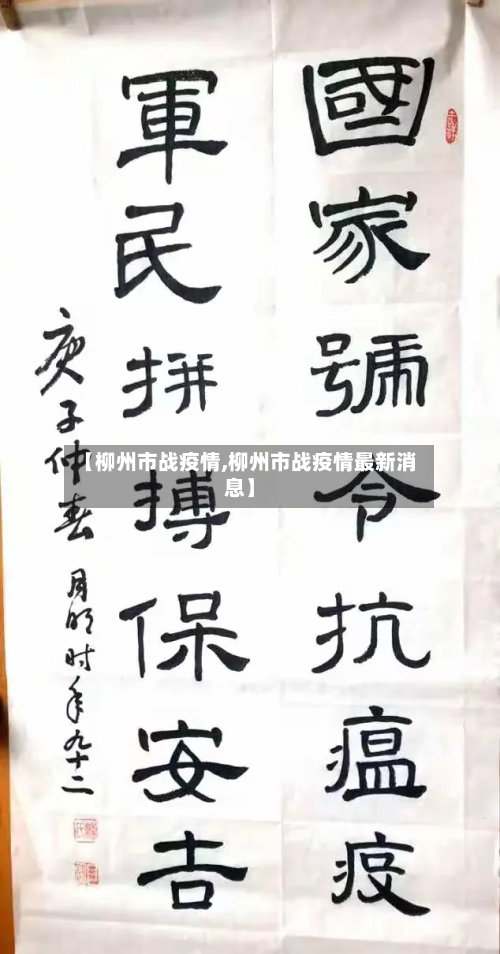 國家號令抗瘟疫
軍民拼搏保安吉
庚子仲春 月明时年九十二
【柳州市战疫情,柳州市战疫情最新消
息】